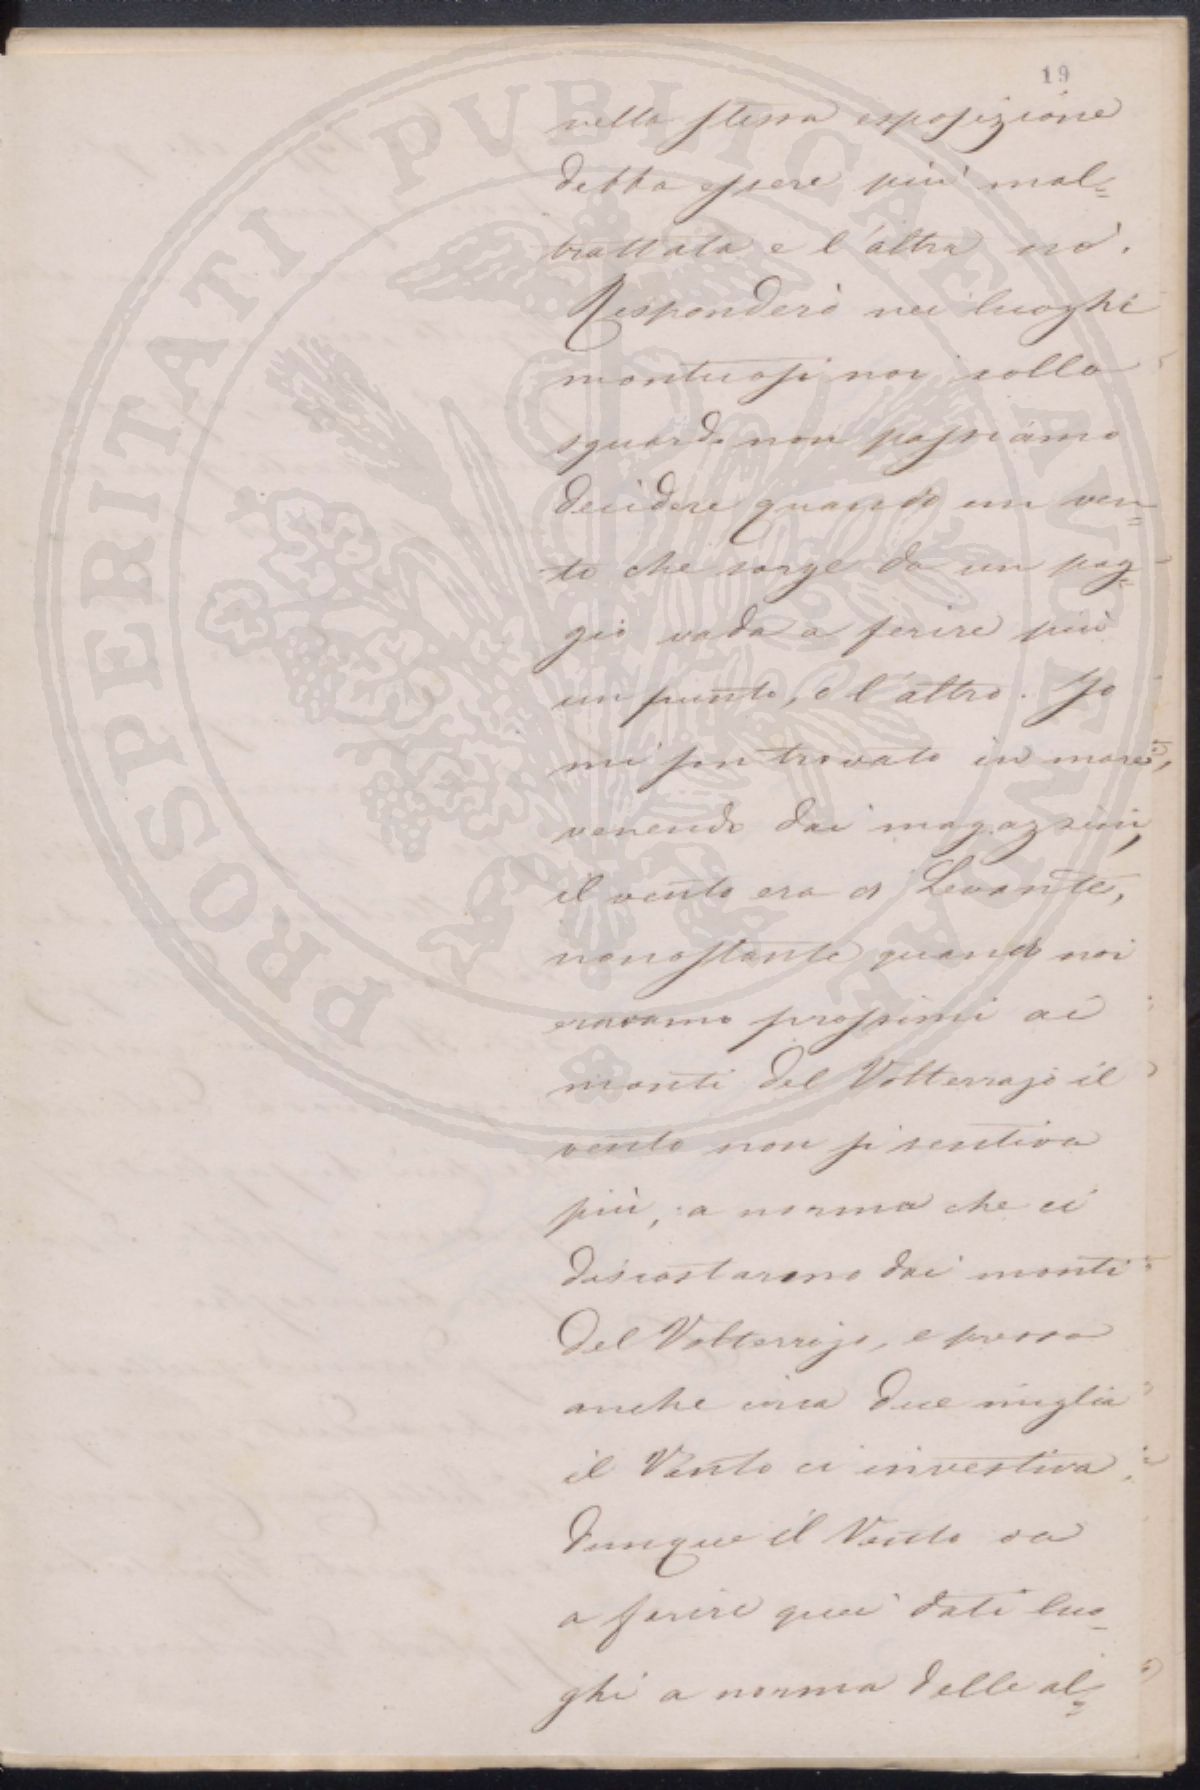 19
nella stessa esposizione
debba essere più mal=
trattata e l'altra nò.
Risponderò nei luoghi
montuosi noi collo
sguardo non possiamo
decidere quando un ven=
to che sorge da un pog=
gio vada a ferire più
un punto, o l'altro. Jo
mi son trovato in mare,
venendo dai magazzini,
il vento era di Levante,
nonostante quando noi
eravamo prossimi ai
monti del Volterrajo il
vento non si sentiva
più, a norma che ci
discostarono dai monti
del Volterrajo, e presso
anche circa due miglia
il Vento ci investiva,
dunque il Vento va
a ferire quei dati luo=
ghi a norma delle al=
PROSPERITATI PUBLICAE AUGENDAE